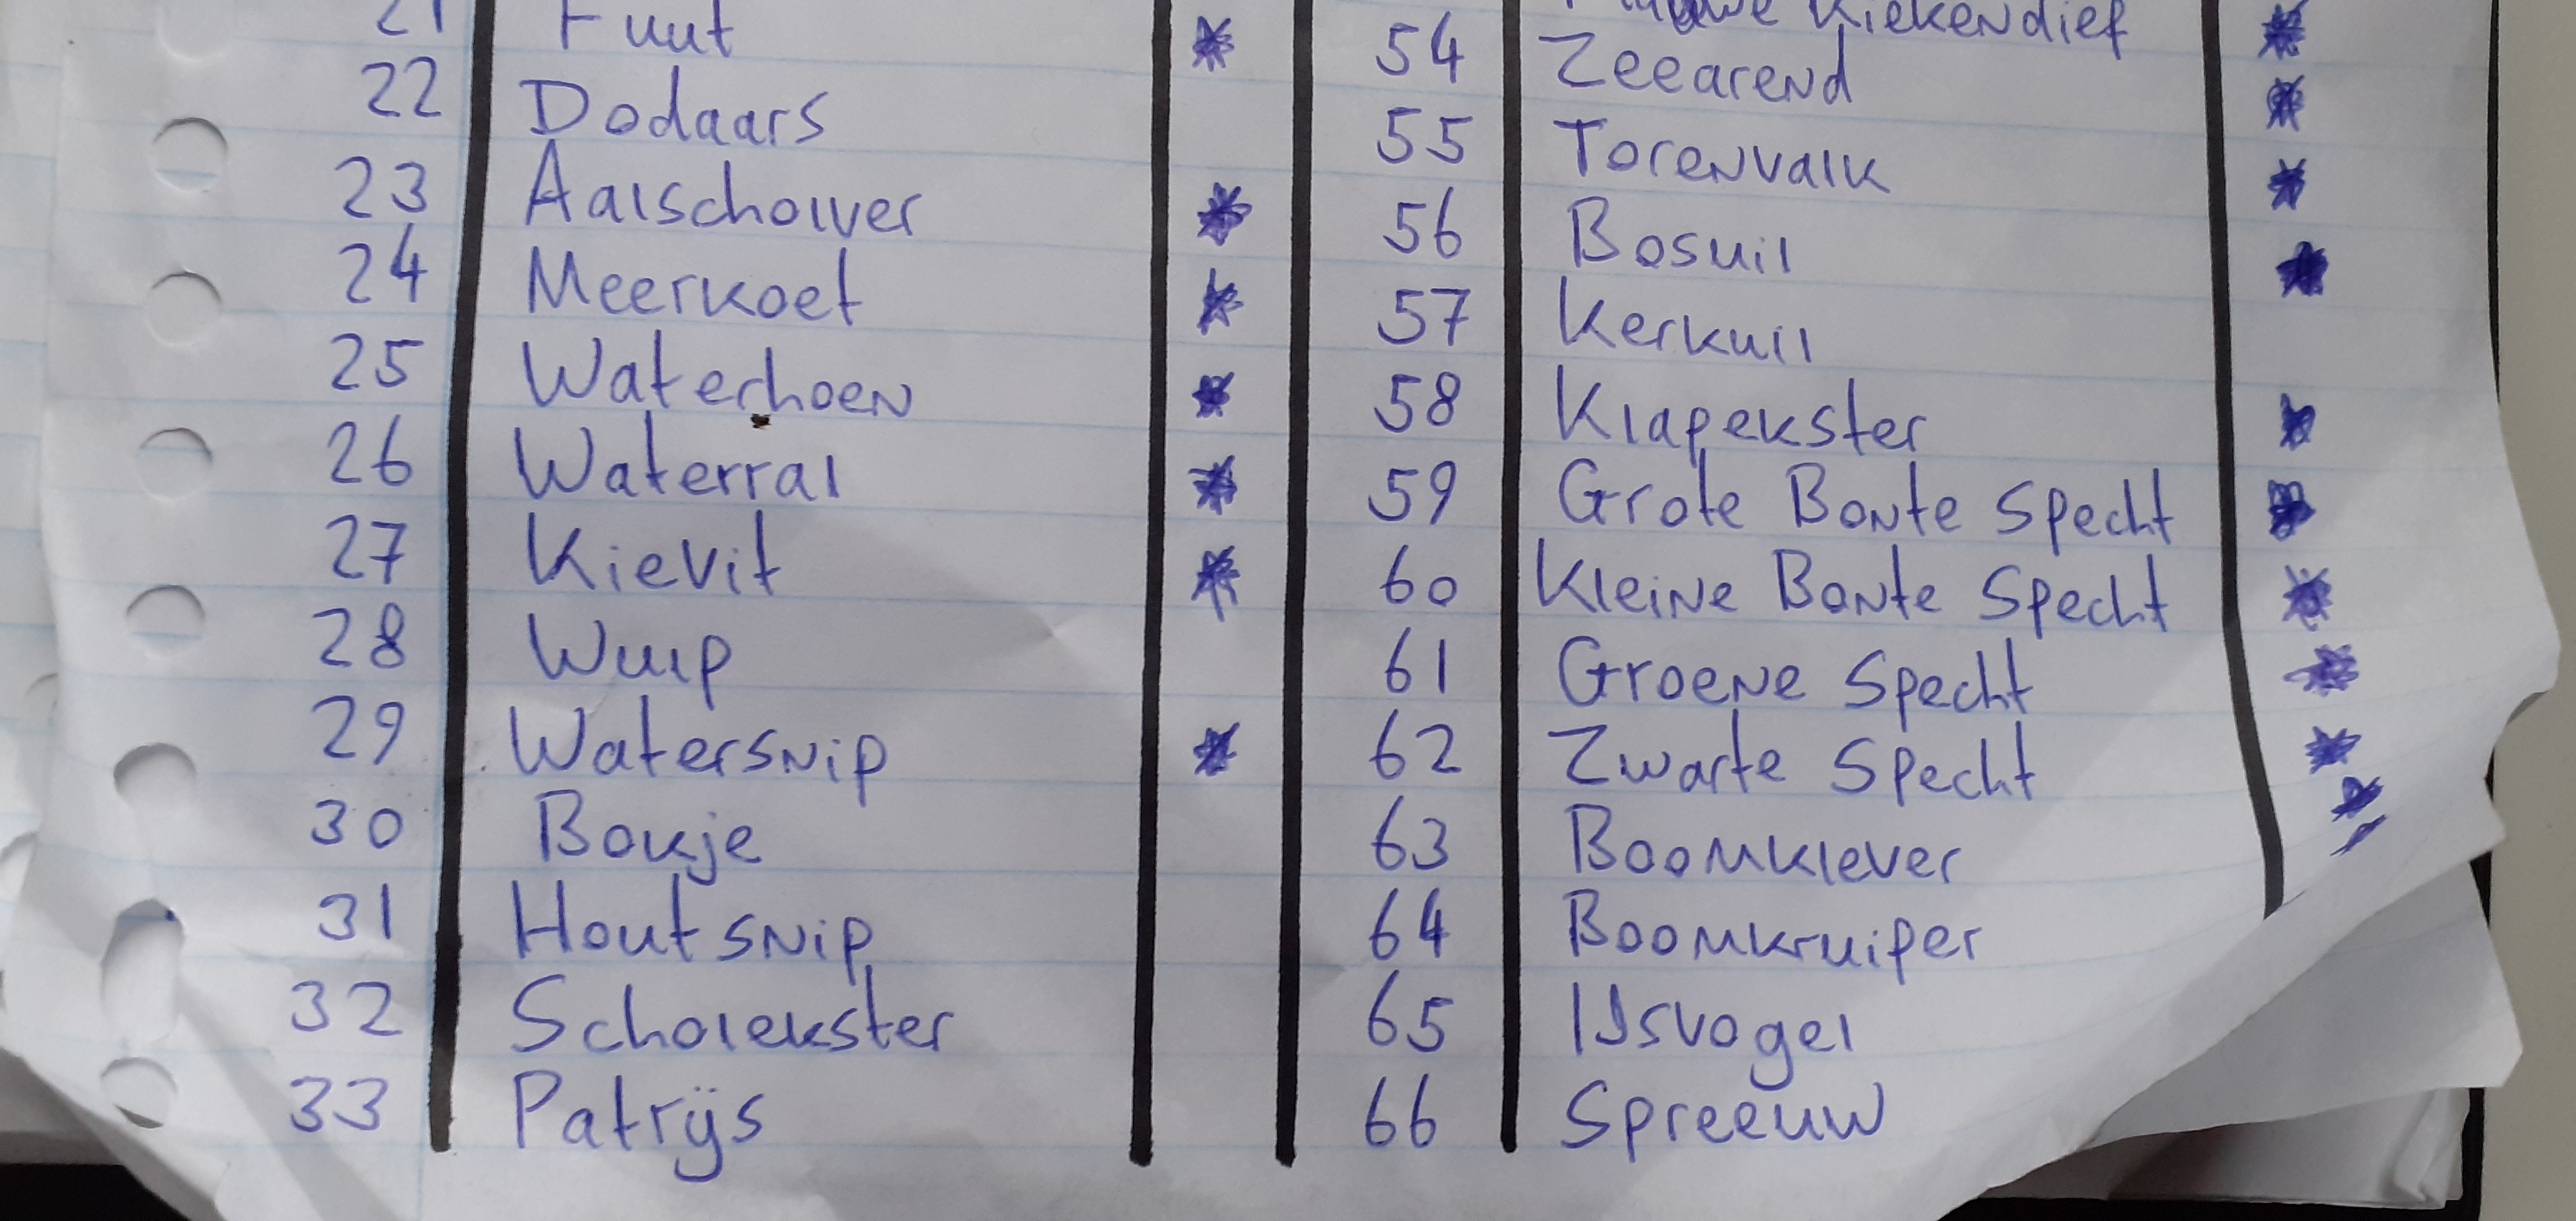 21 Fuut *
22 Dodaars
23 Aalscholver *
24 Meerkoet *
25 Waterhoen *
26 Waterral *
27 Kievit *
28 Wulp
29 Watersnip *
30 Bokje
31 Houtsnip
32 Scholekster
33 Patrijs
Kiekendief *
54 Zeearend *
55 Torenvalk *
56 Bosuil *
57 Kerkuil
58 Klapekster *
59 Grote Bonte Specht *
60 Kleine Bonte Specht *
61 Groene Specht *
62 Zwarte Specht *
63 Boomklever *
64 Boomkruiper
65 IJsvogel
66 Spreeuw